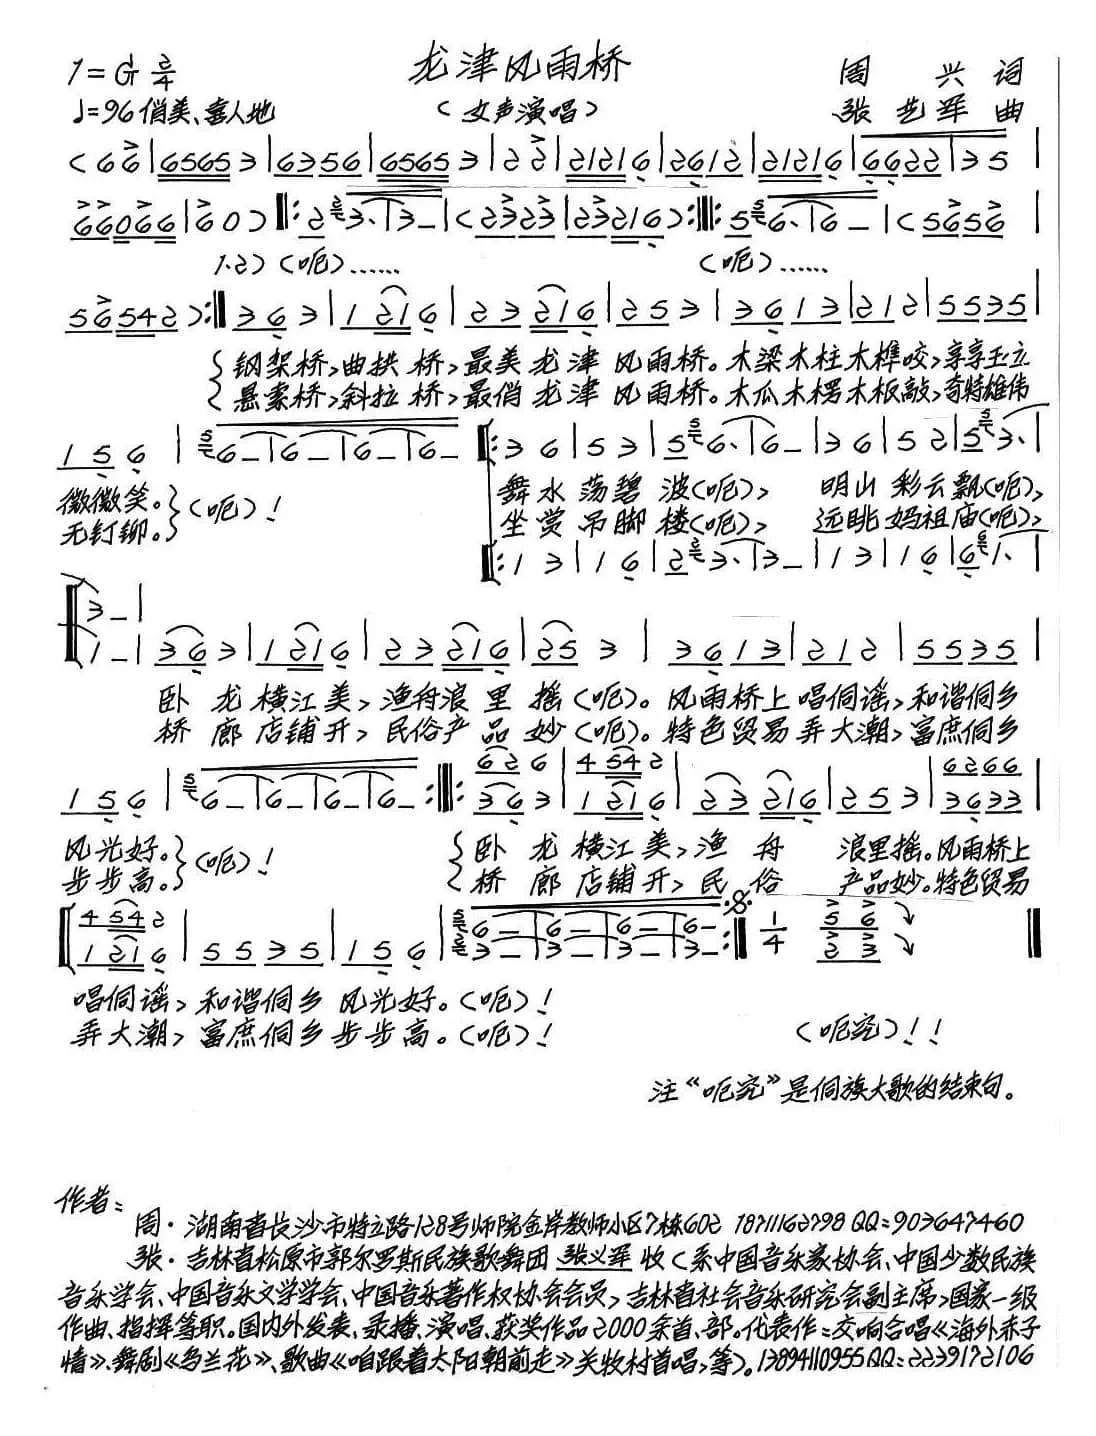 龙津风雨桥
1=G 2/4
周 兴 词
♩=96 俏美、喜人地
(女声演唱)
张艺军 曲
(6 6|6565 3|6356|6565 3|2 2|2121 6|2612|2121 6|6622|3 5|
66066|6 0):2 3.|3 -|(2323|23216):5 6.|6 -|(5656|
1.2)(呃)…… (呃)……
56542):3 6 3|1 21 6|2 3 21 6|2 5 3|3 6 1 3|2 1 2|5535|
钢架桥,曲拱桥,最美龙津风雨桥。木梁木柱木榫咬,亭亭玉立
悬索桥,斜拉桥,最俏龙津风雨桥。木瓜木楞木板敲,奇特雄伟
1 5 6|6 -|6 -|6 -|6 - :3 6|5 3|5 6.|6 -|3 6|5 2|5 3.|
微微笑。(呃)! 舞水荡碧波(呃), 明山彩云飘(呃),
无钉铆。 坐赏吊脚楼(呃), 远眺妈祖庙(呃),
:1 3|1 6|2 3.|3 -|1 3|1 6|6 1.|
3 -|
1 -|3 6 3|1 21 6|2 3 21 6|25 3|3 6 1 3|2 1 2|5535|
卧龙横江美,渔舟浪里摇(呃)。风雨桥上唱侗谣,和谐侗乡
桥廊店铺开,民俗产品妙(呃)。特色贸易弄大潮,富庶侗乡
6 2 6|4 54 2| 6266
1 5 6|6 -|6 -|6 -|6 - :3 6 3|1 21 6|2 3 21 6|2 5 3|3633|
风光好。(呃)! 卧龙横江美,渔舟浪里摇。风雨桥上
步步高。 桥廊店铺开,民俗产品妙。特色贸易
4 54 2 6 -|6 -|6 -|6 - 1/4 5 6
1 21 6|5 5 3 5|1 5 6|3 -|3 -|3 -|3 - : 2 3
唱侗谣,和谐侗乡风光好。(呃)!
弄大潮,富庶侗乡步步高。(呃)! (呃究)!!
注“呃究”是侗族大歌的结束句。
作者:
周·湖南省长沙市特立路128号师院金岸教师小区7栋602 18711162798 QQ:903647460
张·吉林省松原市郭尔罗斯民族歌舞团 张义军 收(系中国音乐家协会、中国少数民族
音乐学会、中国音乐文学学会、中国音乐著作权协会会员,吉林省社会音乐研究会副主席,国家一级
作曲、指挥等职。国内外发表、录播、演唱、获奖作品2000余首、部。代表作:交响合唱《海外赤子
情》、舞剧《乌兰花》、歌曲《咱跟着太阳朝前走》关牧村首唱,等)。13894110955 QQ:2239172106